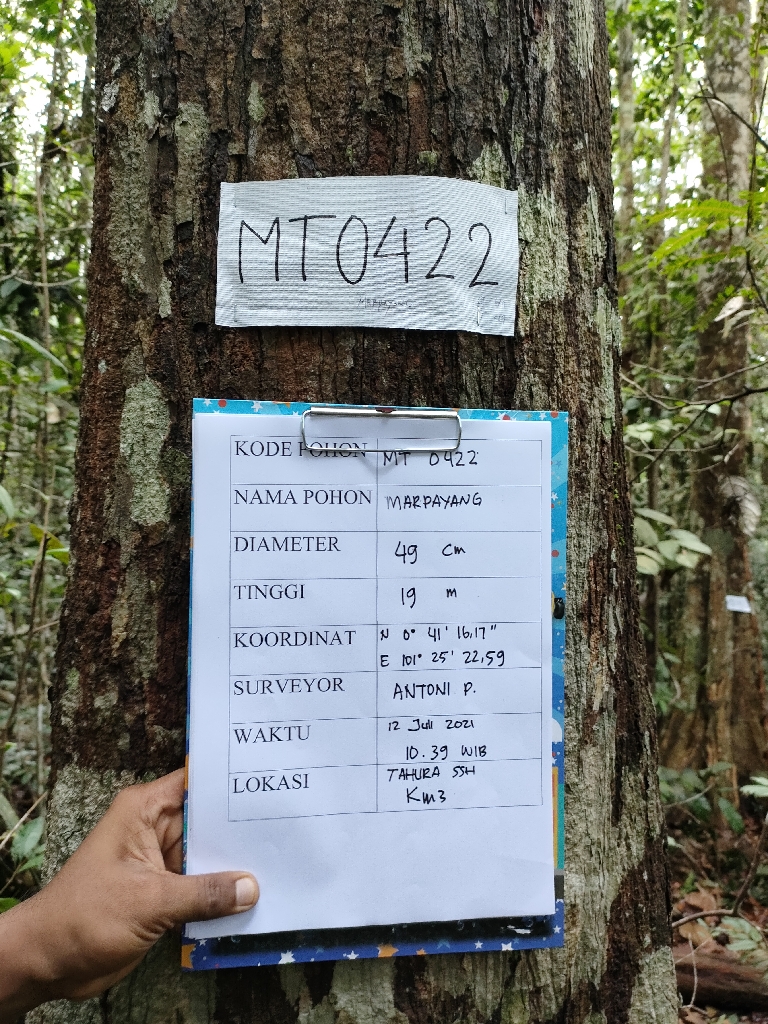 MT0422
MARPAYANG
KODE POHON MT 0422
NAMA POHON MARPAYANG
DIAMETER 49 cm
TINGGI 19 m
KOORDINAT N 0° 41' 16,17"
E 101° 25' 22,59
SURVEYOR ANTONI P.
WAKTU 12 Juli 2021
10.39 WIB
LOKASI TAHURA SSH
Km3